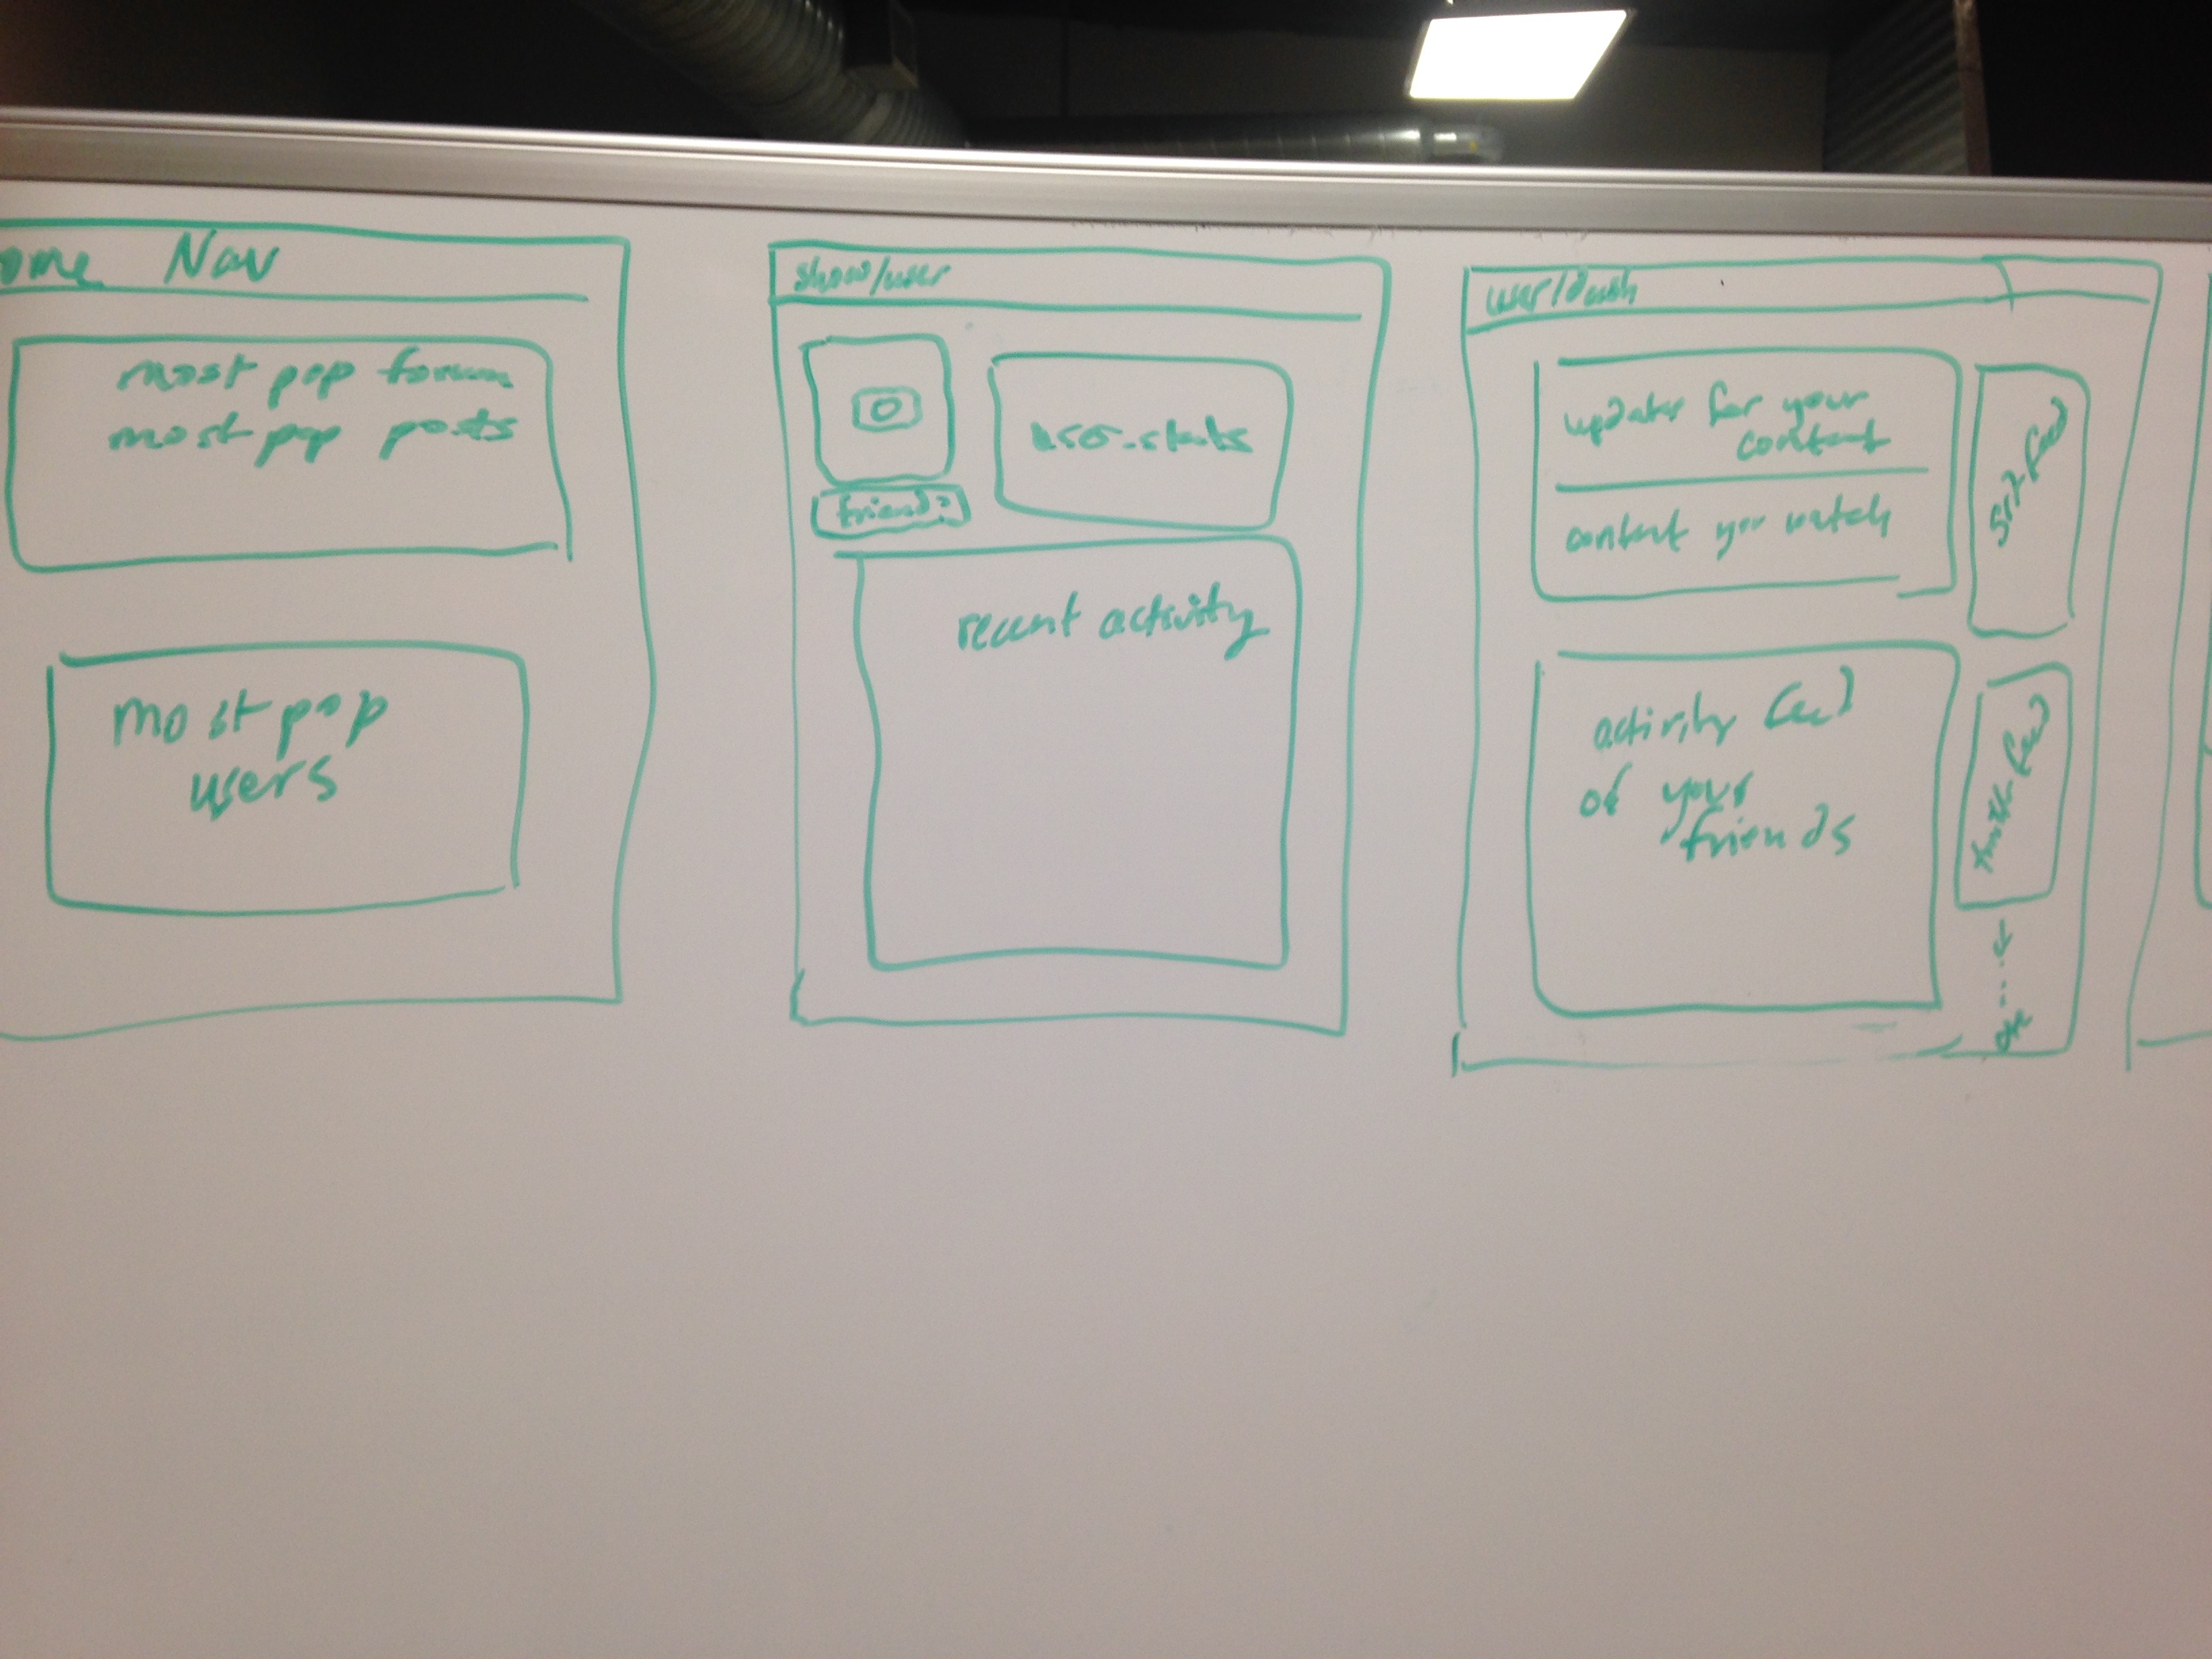 ome Nav
most pop forum
most pop posts
most pop
users
show/user
friend?
user_stats
recent activity
user/dash
updates for your
content
content you watch
activity feed
of your
friends
feed
feed